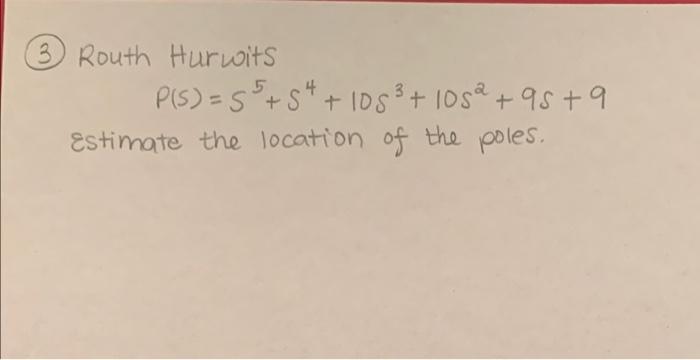 ③ Routh Hurwits
P(S) = S⁵ + S⁴ + 10S³ + 10S² + 9S + 9
Estimate the location of the poles.